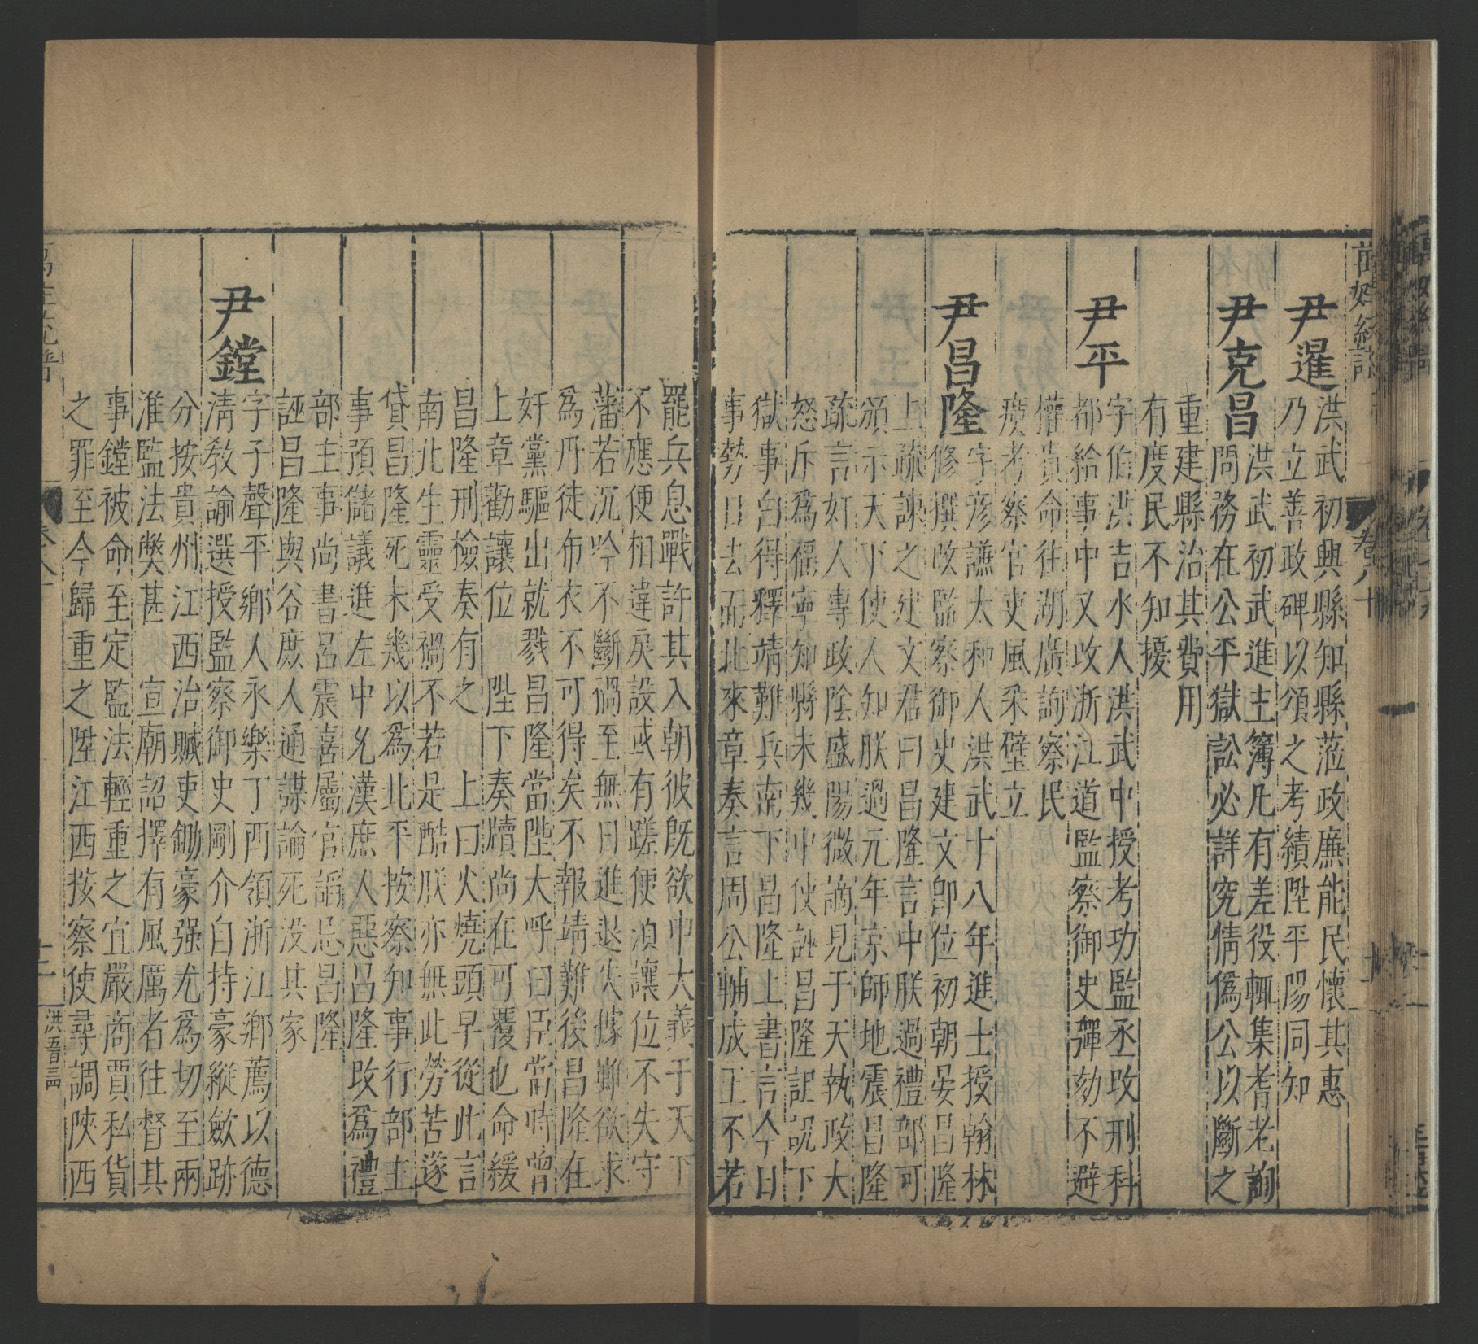 尹暹
洪武初興縣知縣蒞政廉能民懷其惠
乃立善政碑以頌之考績陞平陽同知
尹克昌
洪武初武進主簿凡有差役輒集耆老詢
問務在公平獄訟必詳究情僞公以斷之
重建縣治其費用
有度民不知擾
尹平
字伯洪吉水人洪武中授考功監丞改刑科
都給事中又改浙江道監察御史彈劾不避
權貴命往湖廣詢察民
瘼考察官吏風采璧立
尹昌隆
字彥謙太和人洪武十八年進士授翰林
修撰改監察御史建文卽位初朝晏昌隆
上疏諫之建文君曰昌隆言中朕過禮部可
頒示天下使人知朕過元年京師地震昌隆
疏言奸人專政陰盛陽微謫見于天執政大
怒斥爲福寧知縣未幾
獄事白得釋靖難兵南下昌隆上書言今日
事勢日去而北來章奏言周公輔成王不若
罷兵息戰許其入朝彼旣欲申大義于天下
不應便相違戾設或有蹉便湏讓位不失守
藩若沉吟不斷禍至無日進退失據雖欲求
爲丹徒布衣不可得矣不報靖難後昌隆在
奸黨驅出就戮昌隆當陛大呼曰臣當時曾
上章勸讓位 陛下奏牘尚在可覆也命緩
昌隆刑檢奏有之 上曰火燒頭早從此言
南北生靈受禍不若是酷朕亦無此勞苦遂
貸昌隆死未幾以爲北平按察知事行部主
事預儲議進左中允漢庶人惡昌隆改爲禮
部主事尚書呂震喜屬官謟忌昌隆
誣昌隆與谷庶人通謀論死没其家
尹鏜
字子聲平鄉人永樂丁酉領浙江鄉薦以德
淸敎諭選授監察御史剛介自持豪縱斂跡
分按貴州江西治贓吏鋤豪强尤爲切至兩
淮監法獘甚 宣廟詔擇有風厲者往督其
事鏜被命至定監法輕重之宜嚴商賈私貨
之罪至今歸重之陞江西按察使尋調陝西